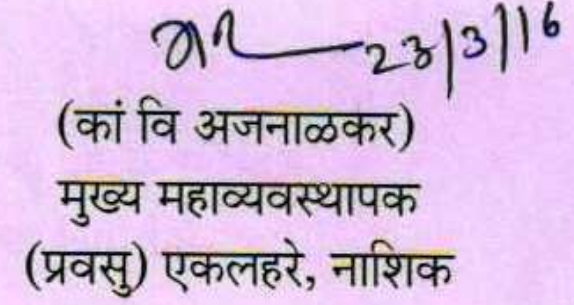 23/3/16
(कां वि अजनाळकर)
मुख्य महाव्यवस्थापक
(प्रवसु) एकलहरे, नाशिक